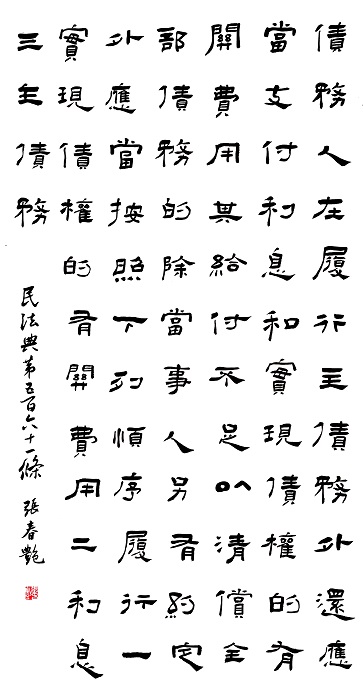 債務人在履行主債務外還應
當支付利息和實現債權的有
關費用其給付不足以清償全
部債務的除當事人另有約定
外應當按照下列順序履行一
實現債權的有關費用二利息
三主債務
民法典第五百六十一條 張春艷